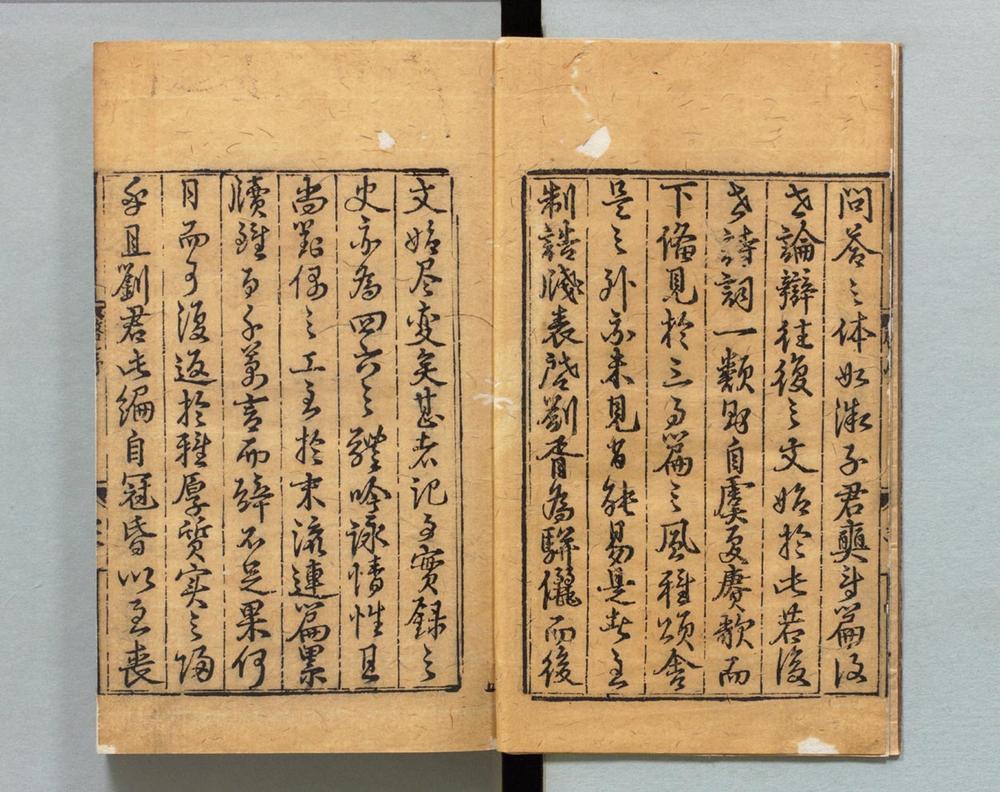 問答之体如微子君奭等篇後
世論辯往復之文始於此若後
世詩詞一類則自虞夏賡歌而
下備見於三百篇之風雅頌舍
是之外亦未見有能易是者至
制誥牋表啓劄胥為駢儷而後
文始尽变矣甚者記事實録之
史亦為四六之體吟詠情性且
尚對偶之工至於末流連篇累
牘雖百千萬言而辭不足果何
自而可復返於雅厚質实之歸
乎且劉君此編自冠昏以至喪